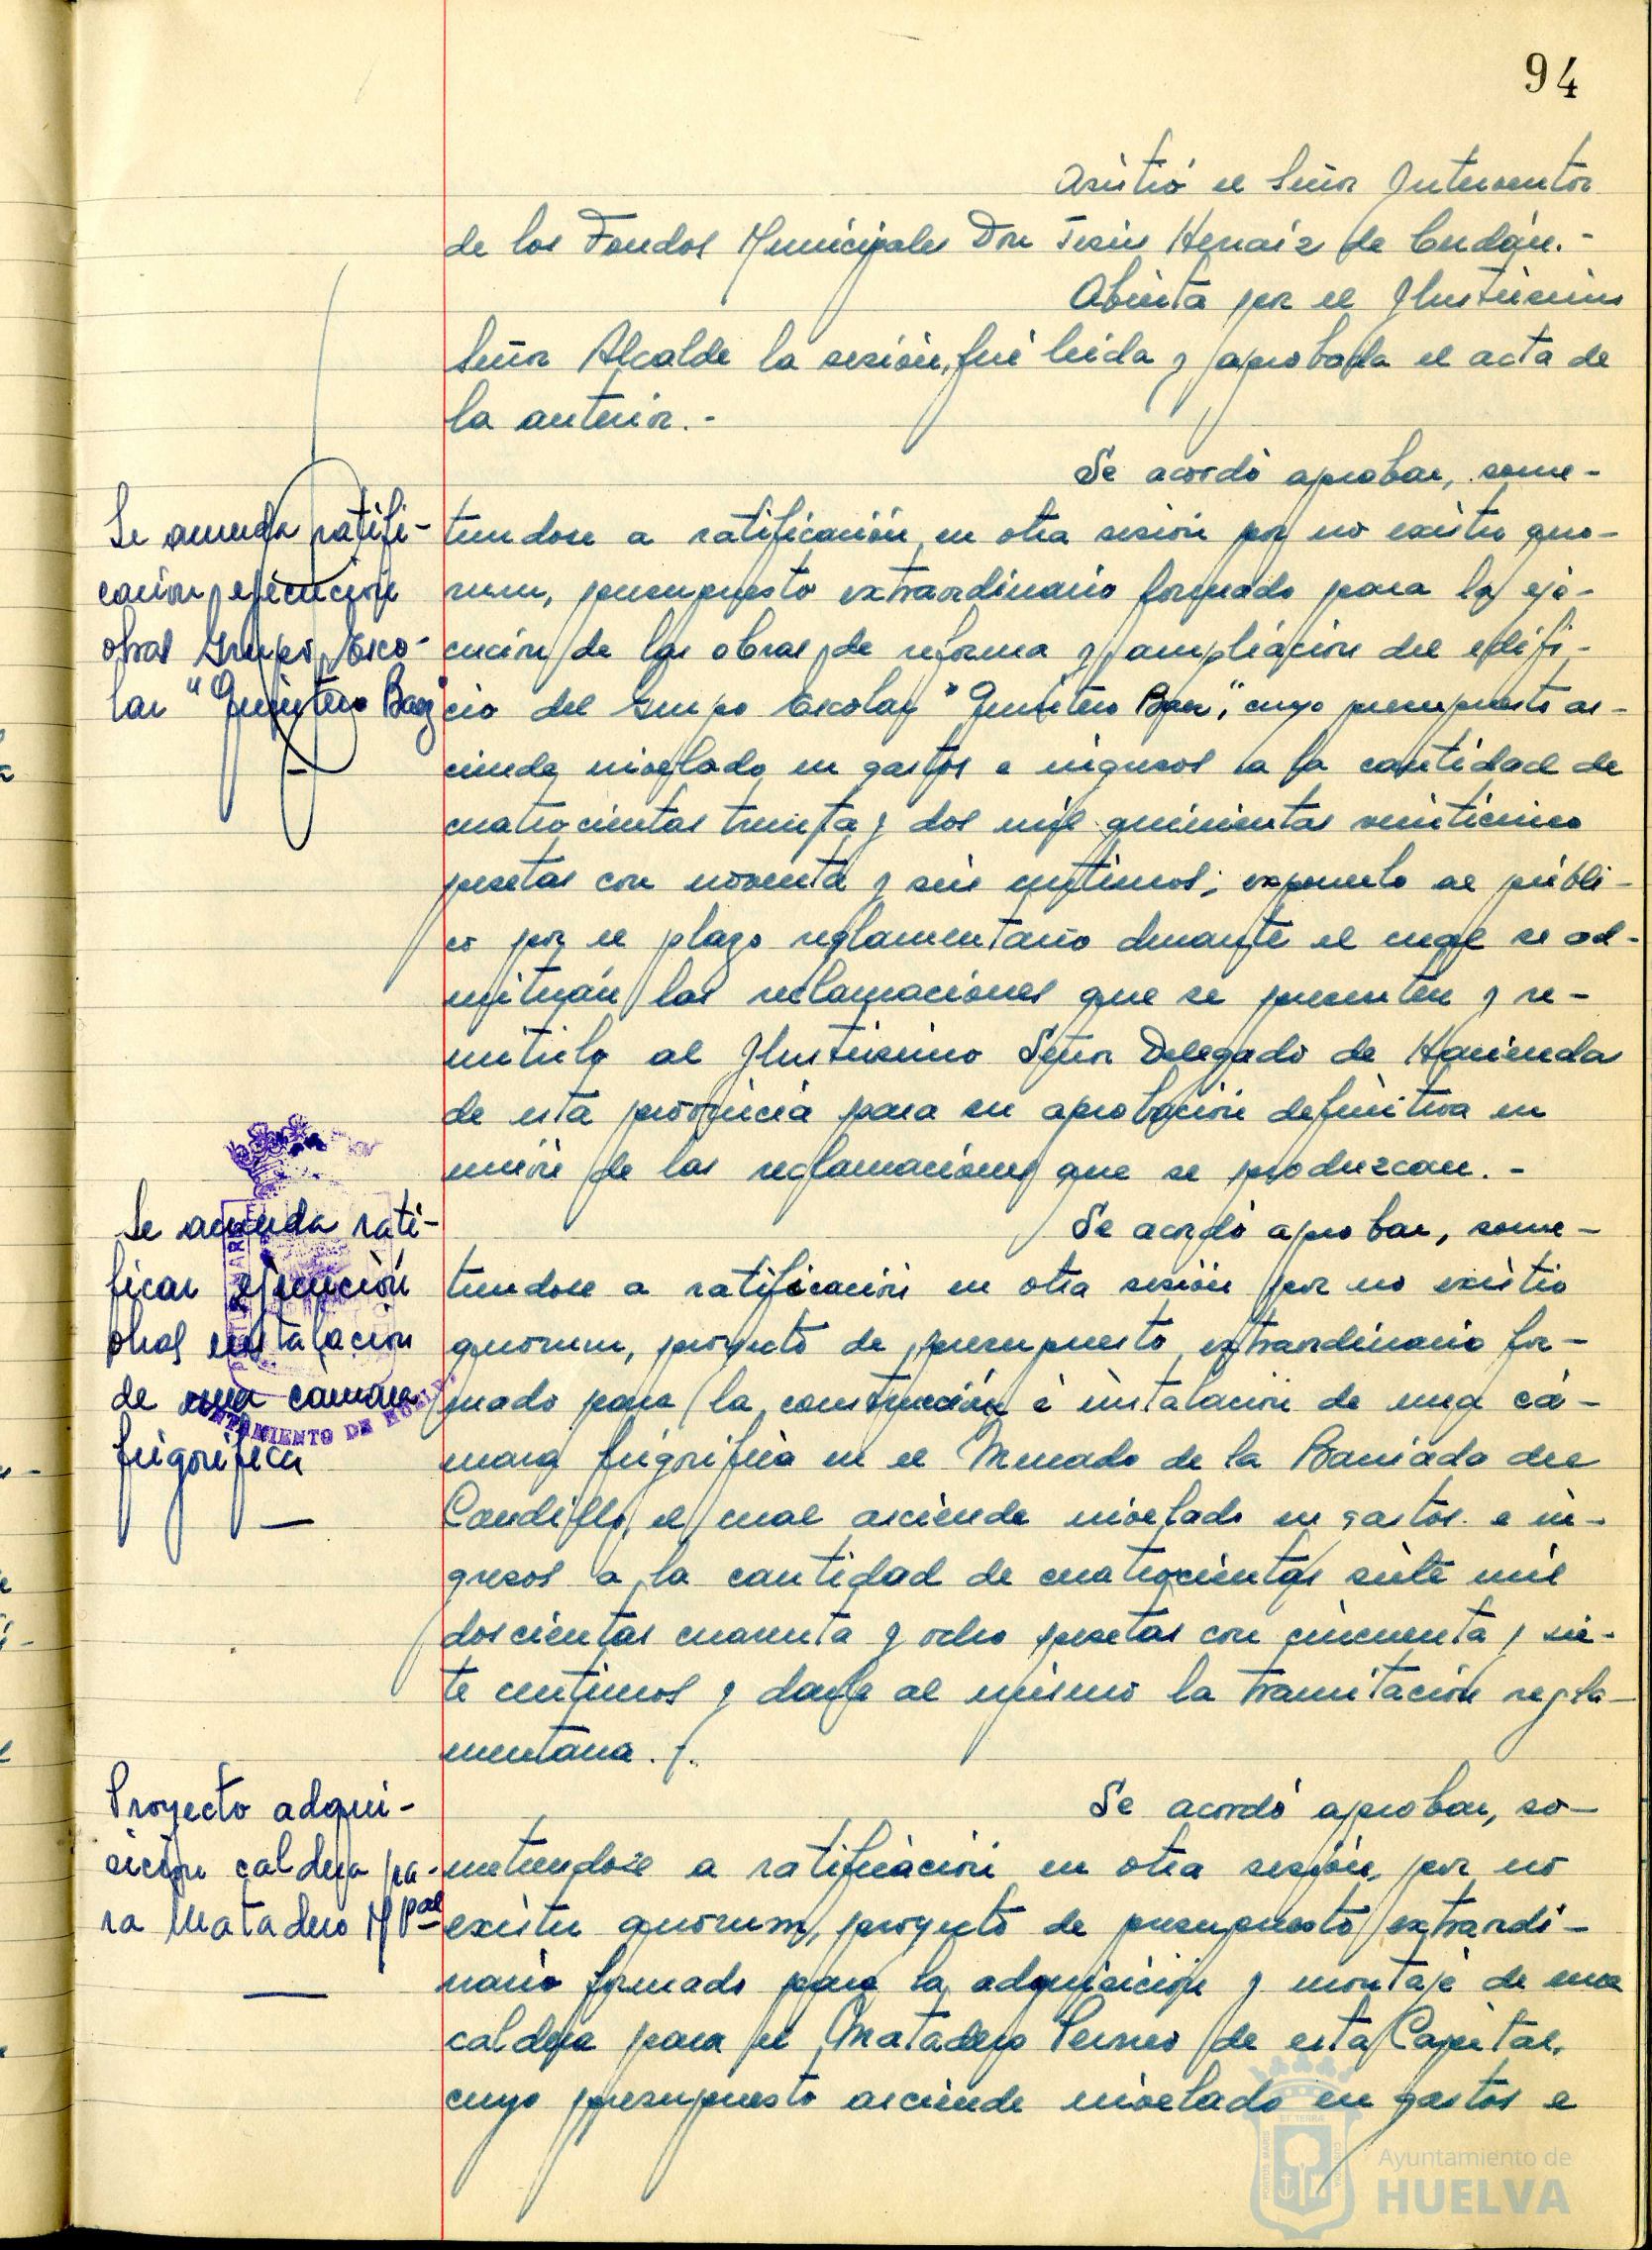 94
Asistió el Señor Interventor
de los Fondos Municipales Don Jesús Henaiz de
Abierta por el Ilustrísimo
Señor Alcalde la sesión, fué leida y aprobada el acta de
la anterior.-
Se acordó aprobar, some-
Se acuerda ratifi-
cación ejecución
obras Grupo Esco-
lar "Quintero Baez"
tiendose a ratificación en otra sesión por no existir quo-
rum, presupuesto extraordinario formado para la eje-
cución de las obras de reforma y ampliación del edifi-
cio del Grupo Escolar "Quintero Baez", cuyo presupuesto as-
ciende nivelado en gastos e ingresos a la cantidad de
cuatrocientas treinta y dos mil quinientas veinticinco
pesetas con noventa y seis centimos; exponerlo al públi-
co por el plazo reglamentario durante el cual se ad-
mitirán las reclamaciones que se presenten y re-
mitirlo al Ilustrisimo Señor Delegado de Hacienda
de esta provincia para su aprobación definitiva en
unión de las reclamaciones que se produzcan.-
Se acordó aprobar, some-
Se acuerda rati-
ficar ejecución
obras instalación
de una camara
frigorifica
AYUNTAMIENTO DE HUELVA
tiendose a ratificación en otra sesión por no existir
quorum, proyecto de presupuesto extraordinario for-
mado para la construcción é instalación de una cá-
mara frigorifica en el Mercado de la Barriada del
Caudillo, el cual asciende nivelado en gastos e in-
gresos a la cantidad de cuatrocientas siete mil
doscientas cuarenta y ocho pesetas con cincuenta y sie-
te centimos y darle al mismo la tramitación regla-
mentaria.-
Se acordó aprobar, so-
Proyecto adqui-
sición caldera pa-
ra Matadero MPal
metiendose a ratificación en otra sesión, por no
existir quorum, proyecto de presupuesto extraordi-
nario formado para la adquisición y montaje de una
caldera para el Matadero de esta Capital,
cuyo presupuesto asciende nivelado en gastos e
Ayuntamiento de
HUELVA